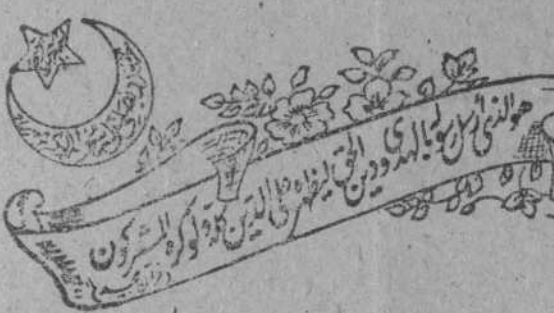 هوالذی ارسل رسولہ بالہدی ودین الحق لیظہرہ علی الدین کلہ ولوکرہ المشرکون